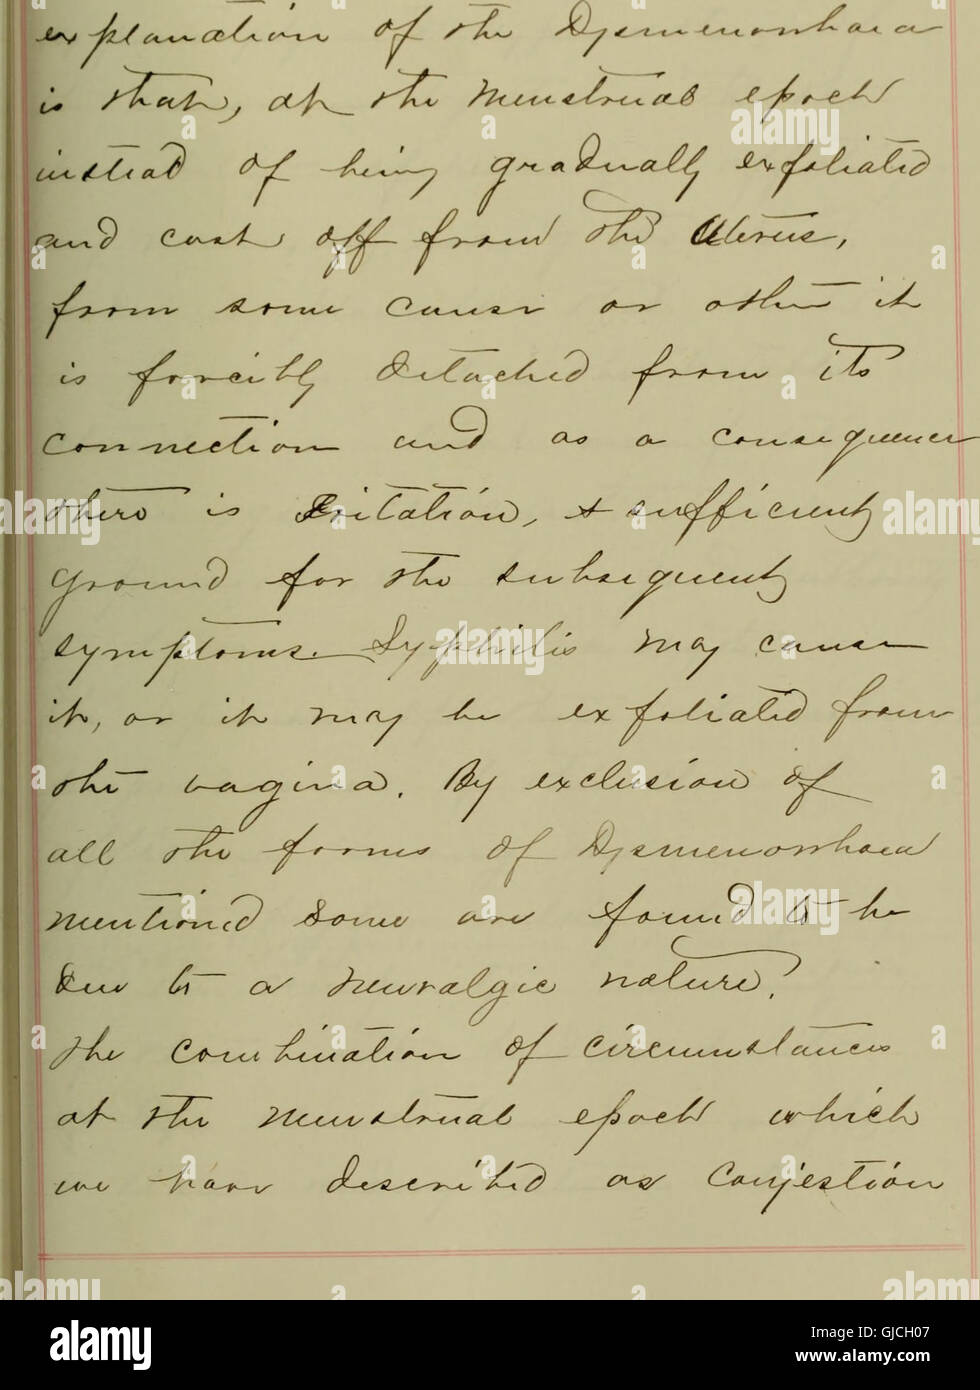 explanation of the Dysmenorrhaea
is that, at the menstrual epoch
instead of being gradually exfoliated
and cast off from the Uterus,
from some cause or other it
is forcibly detached from its
connection and as a consequence
there is Iritation, & sufficient
ground for the subsequent
symptoms. Syphilis may cause
it, or it may be exfoliated from
the vagina. By exclusion of
all the forms of Dysmenorrhaea
mentioned some are found to be
due to a neuralgic nature.
The combination of circumstances
at the menstrual epoch which
we have described as Conjestion
alamy
Image ID: GJCH07
www.alamy.com